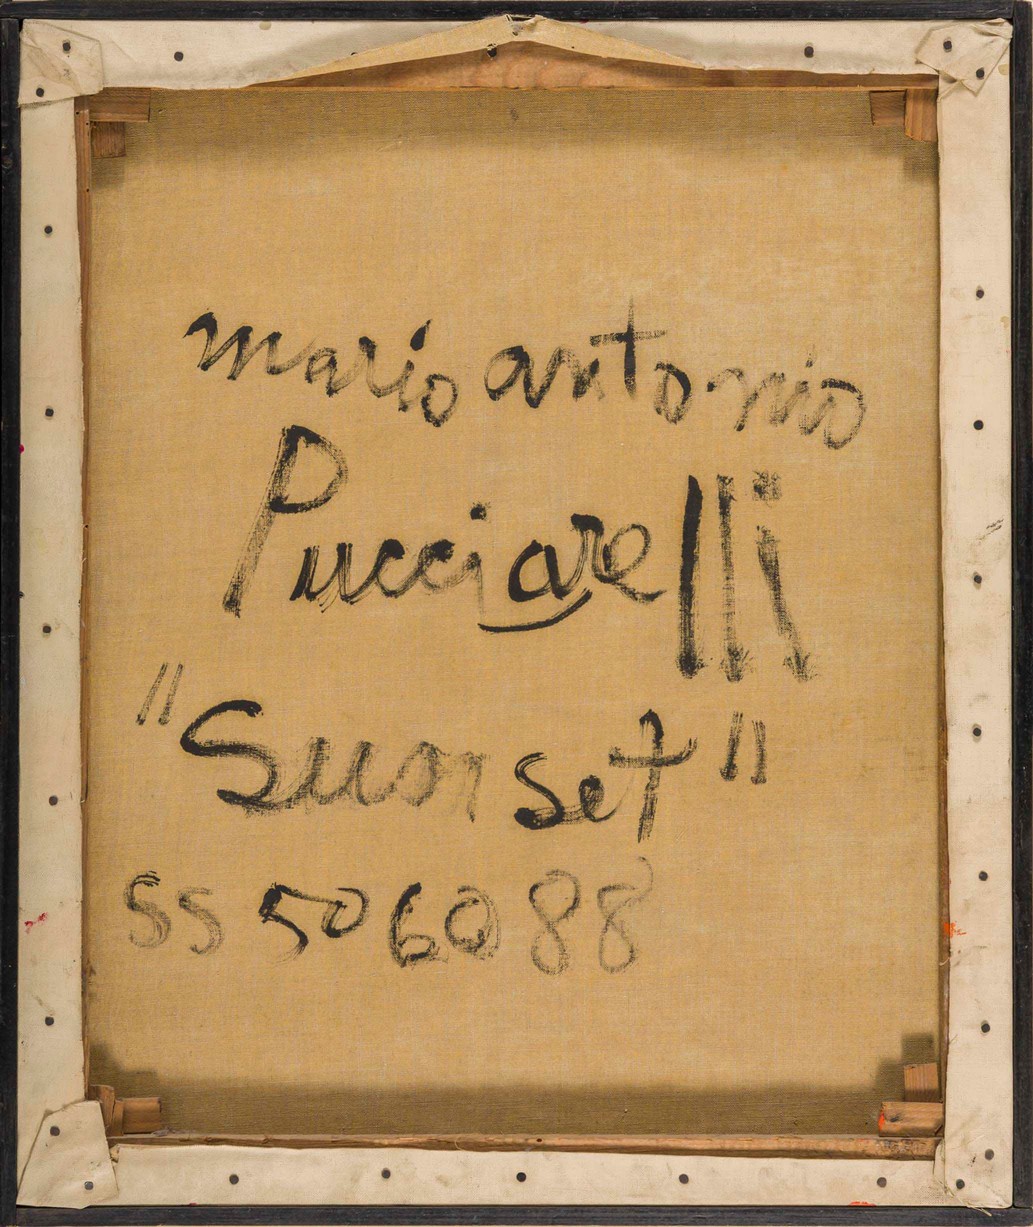 mario antonio
Pucciarelli
"Sunset"
SS 50 60 88